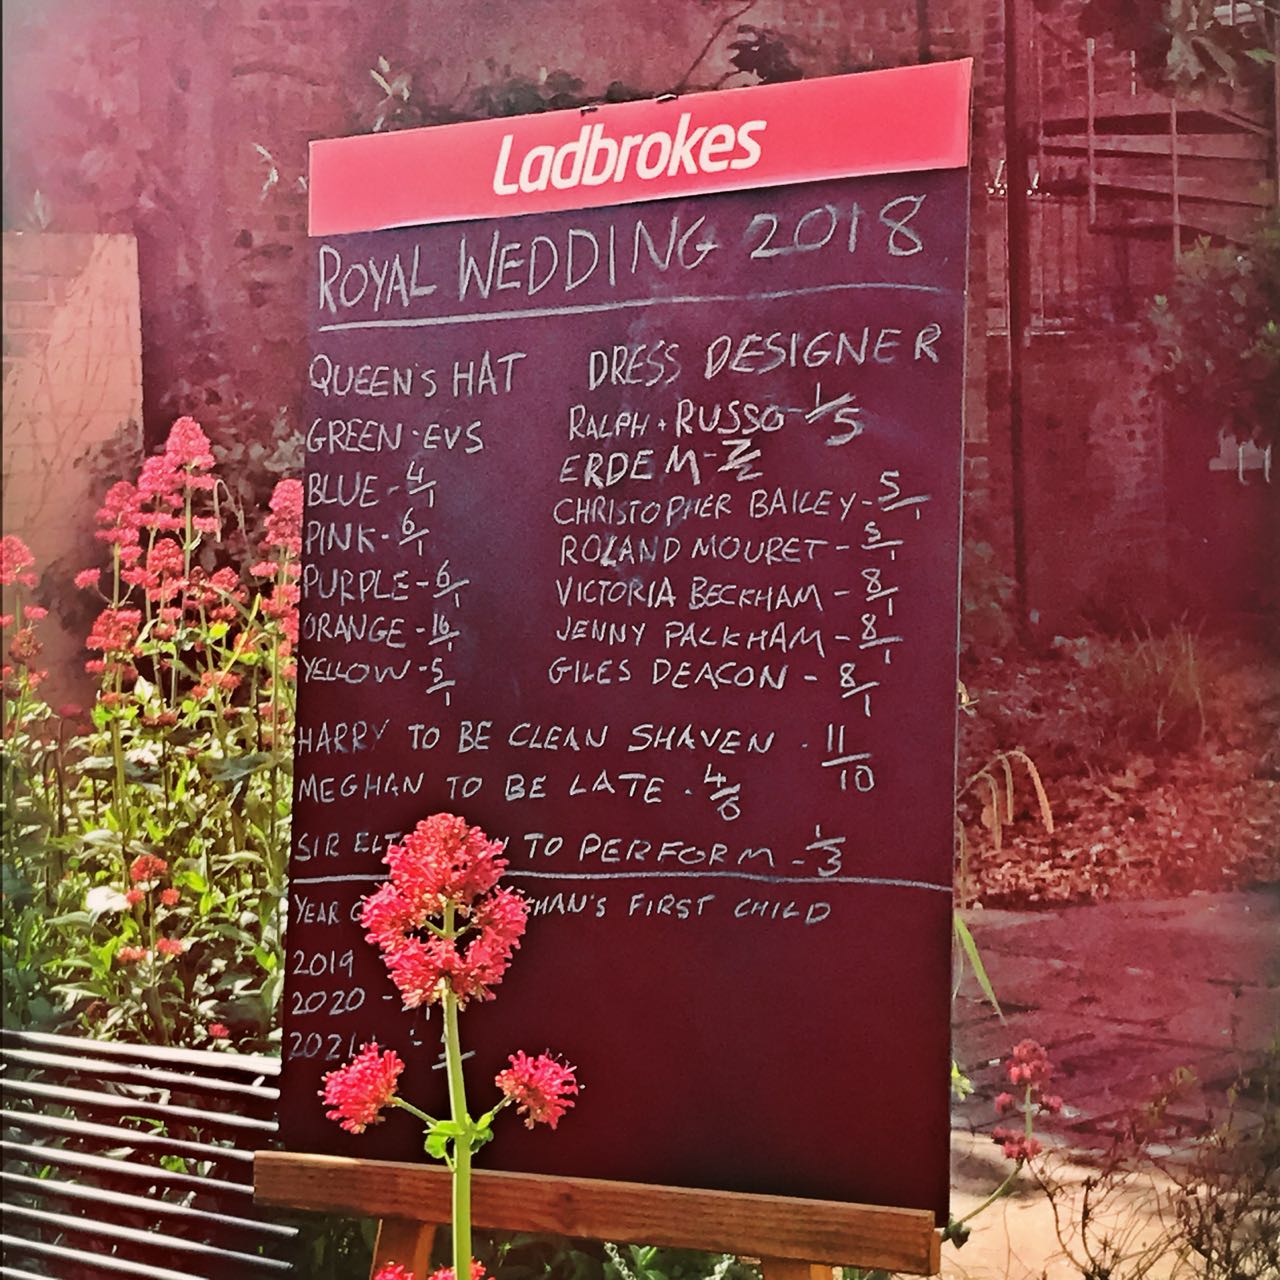 Ladbrokes
ROYAL WEDDING 2018
QUEEN'S HAT
GREEN - EVS
BLUE - 4/1
PINK - 6/1
PURPLE - 6/1
ORANGE - 16/1
YELLOW - 5/1
DRESS DESIGNER
RALPH + RUSSO - 1/5
ERDEM -
CHRISTOPHER BAILEY - 5/1
ROLAND MOURET - 5/1
VICTORIA BECKHAM - 8/1
JENNY PACKHAM - 8/1
GILES DEACON - 8/1
HARRY TO BE CLEAN SHAVEN - 11/10
MEGHAN TO BE LATE - 4/6
SIR TO PERFORM - 1/3
YEAR FIRST CHILD
2019
2020 -
2021